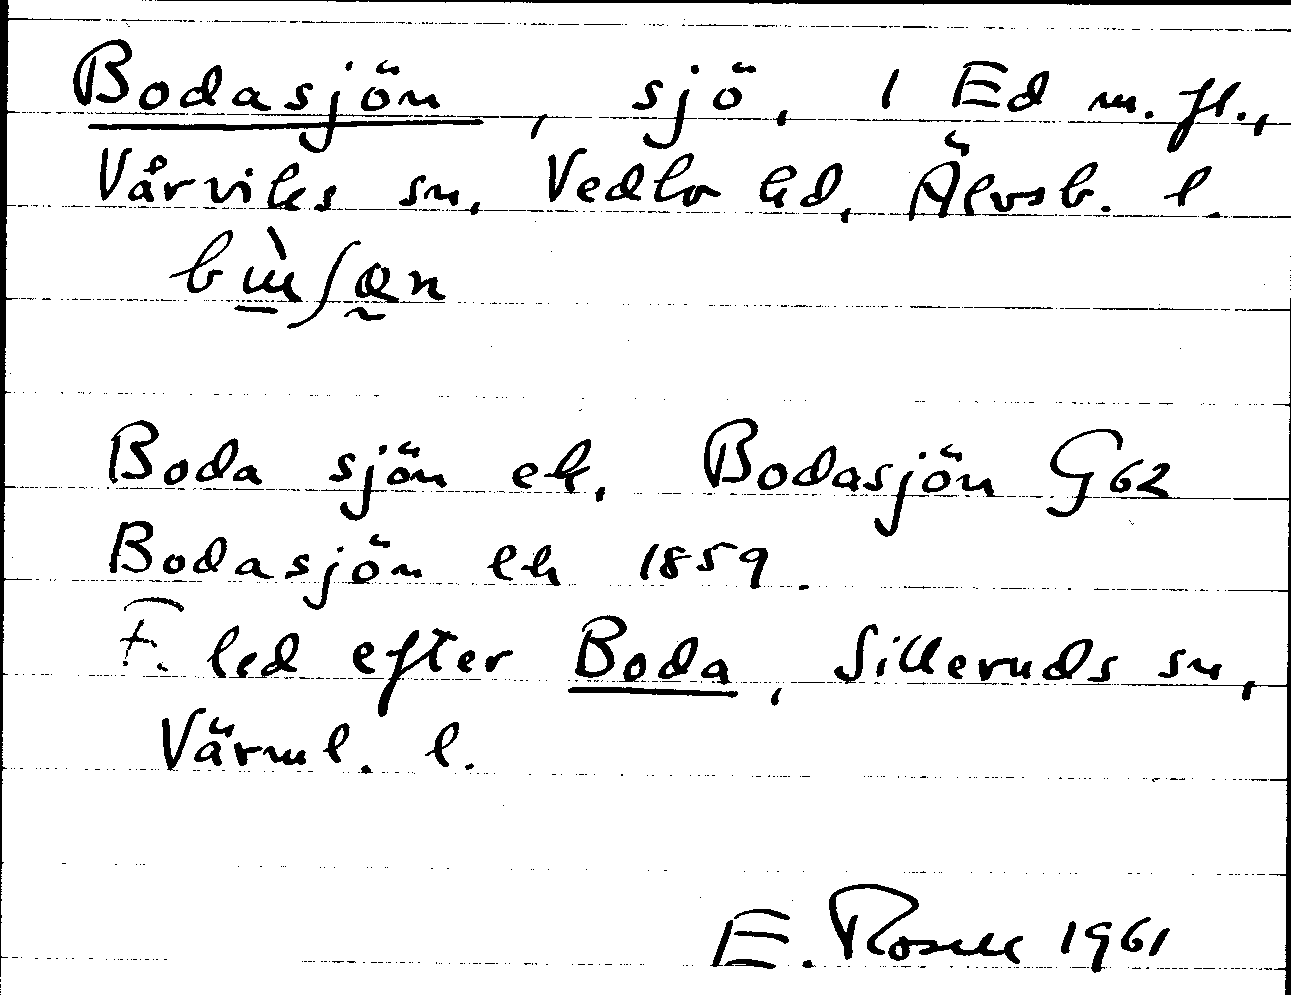 Bodasjön, sjö, 1 Ed m. fl.,
Vårviks sn, Vedbo hd, Älvsb. l.
Boda sjön ek. Bodasjön G62
Bodasjön ek 1859.
F. led efter Boda, Silleruds sn,
Värml. l.
E. Rosell 1961